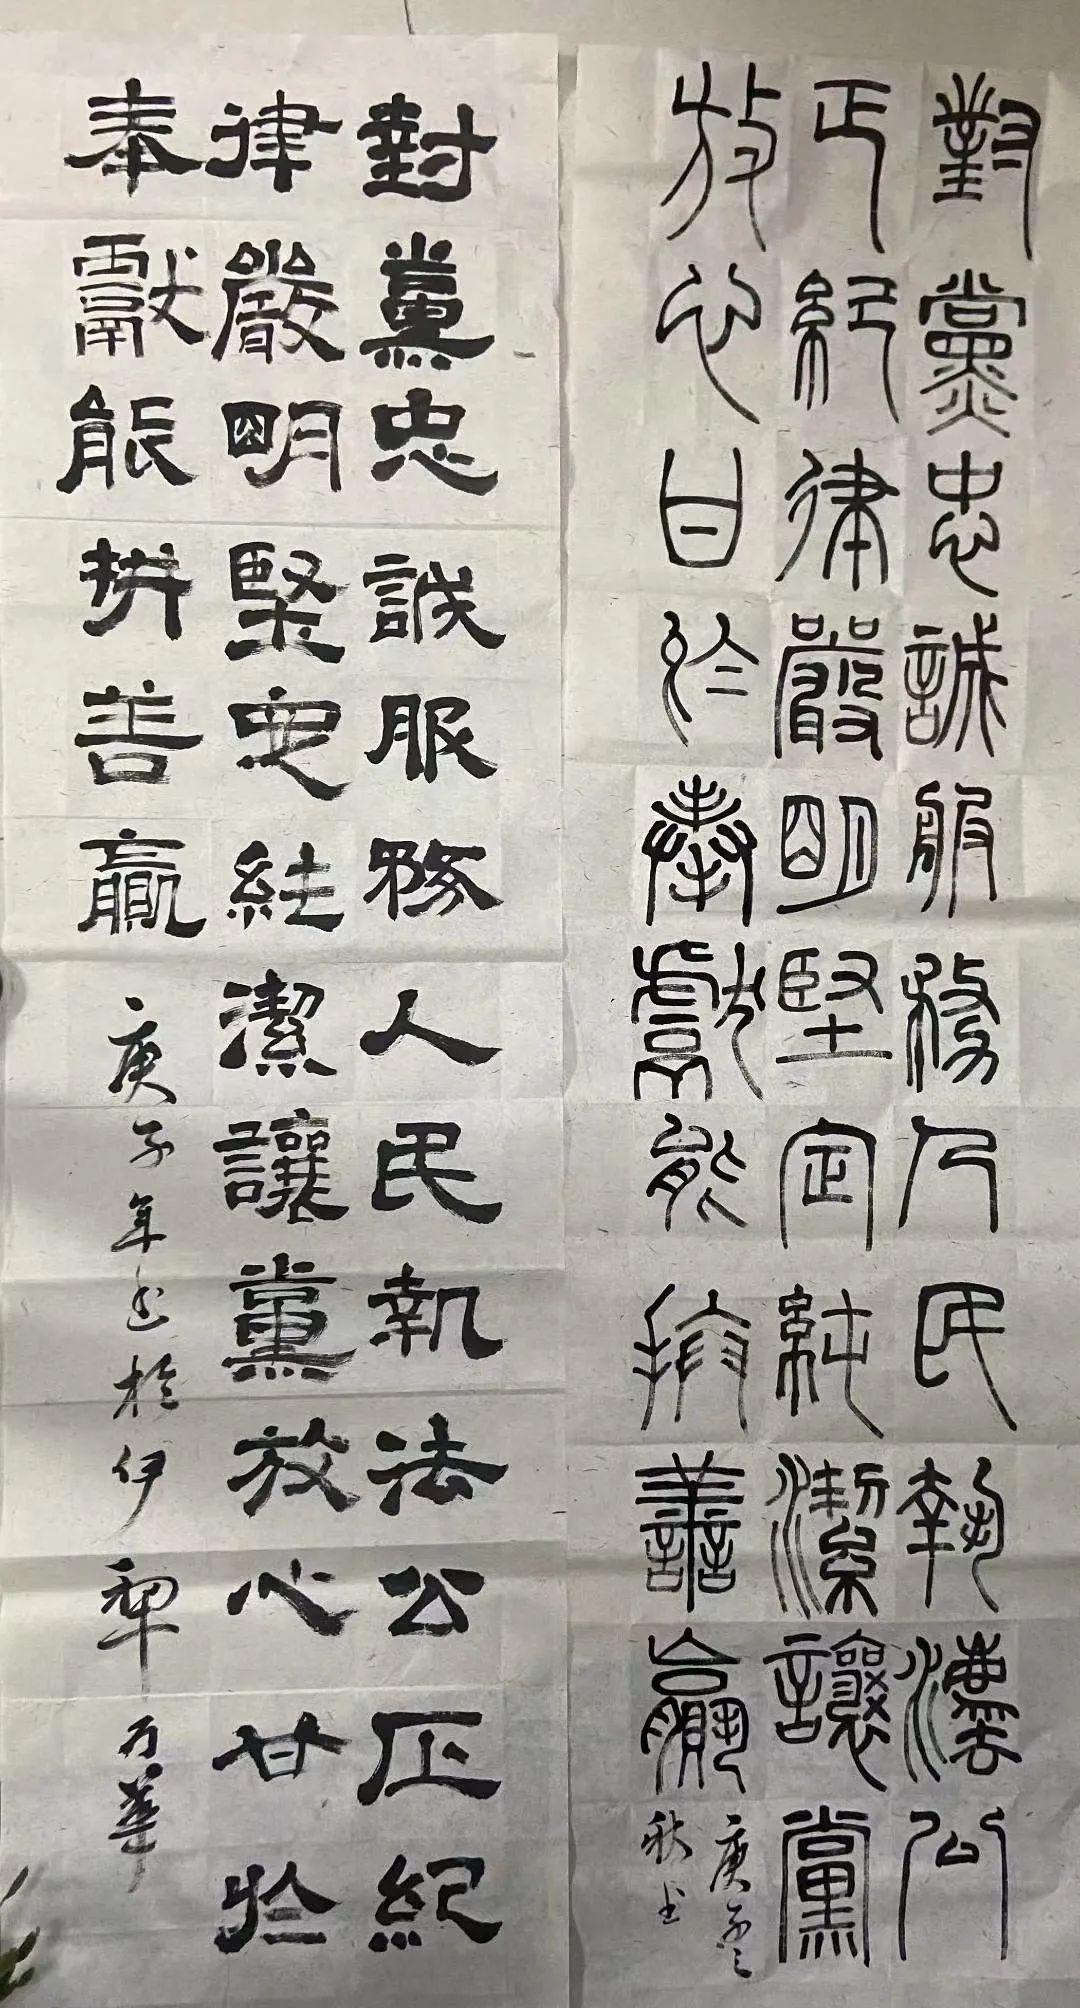 對黨忠誠服務人民執灋公
正紀律嚴明堅定純潔讓黨
放心甘於奉獻能拼善贏
庚子之
秋书
對黨忠誠服務人民執法公正紀
律嚴明堅定純潔讓黨放心甘於
奉獻能拼善贏
庚子年书於伊犁 華